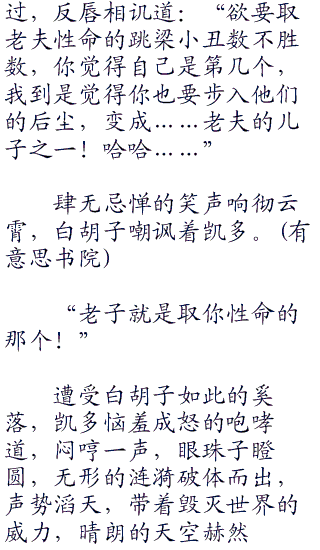 过，反唇相讥道：“欲要取
老夫性命的跳梁小丑数不胜
数，你觉得自己是第几个，
我到是觉得你也要步入他们
的后尘，变成……老夫的儿
子之一！哈哈……”
肆无忌惮的笑声响彻云
霄，白胡子嘲讽着凯多。(有
意思书院)
“老子就是取你性命的
那个！”
遭受白胡子如此的奚
落，凯多恼羞成怒的咆哮
道，闷哼一声，眼珠子瞪
圆，无形的涟漪破体而出，
声势滔天，带着毁灭世界的
威力，晴朗的天空赫然